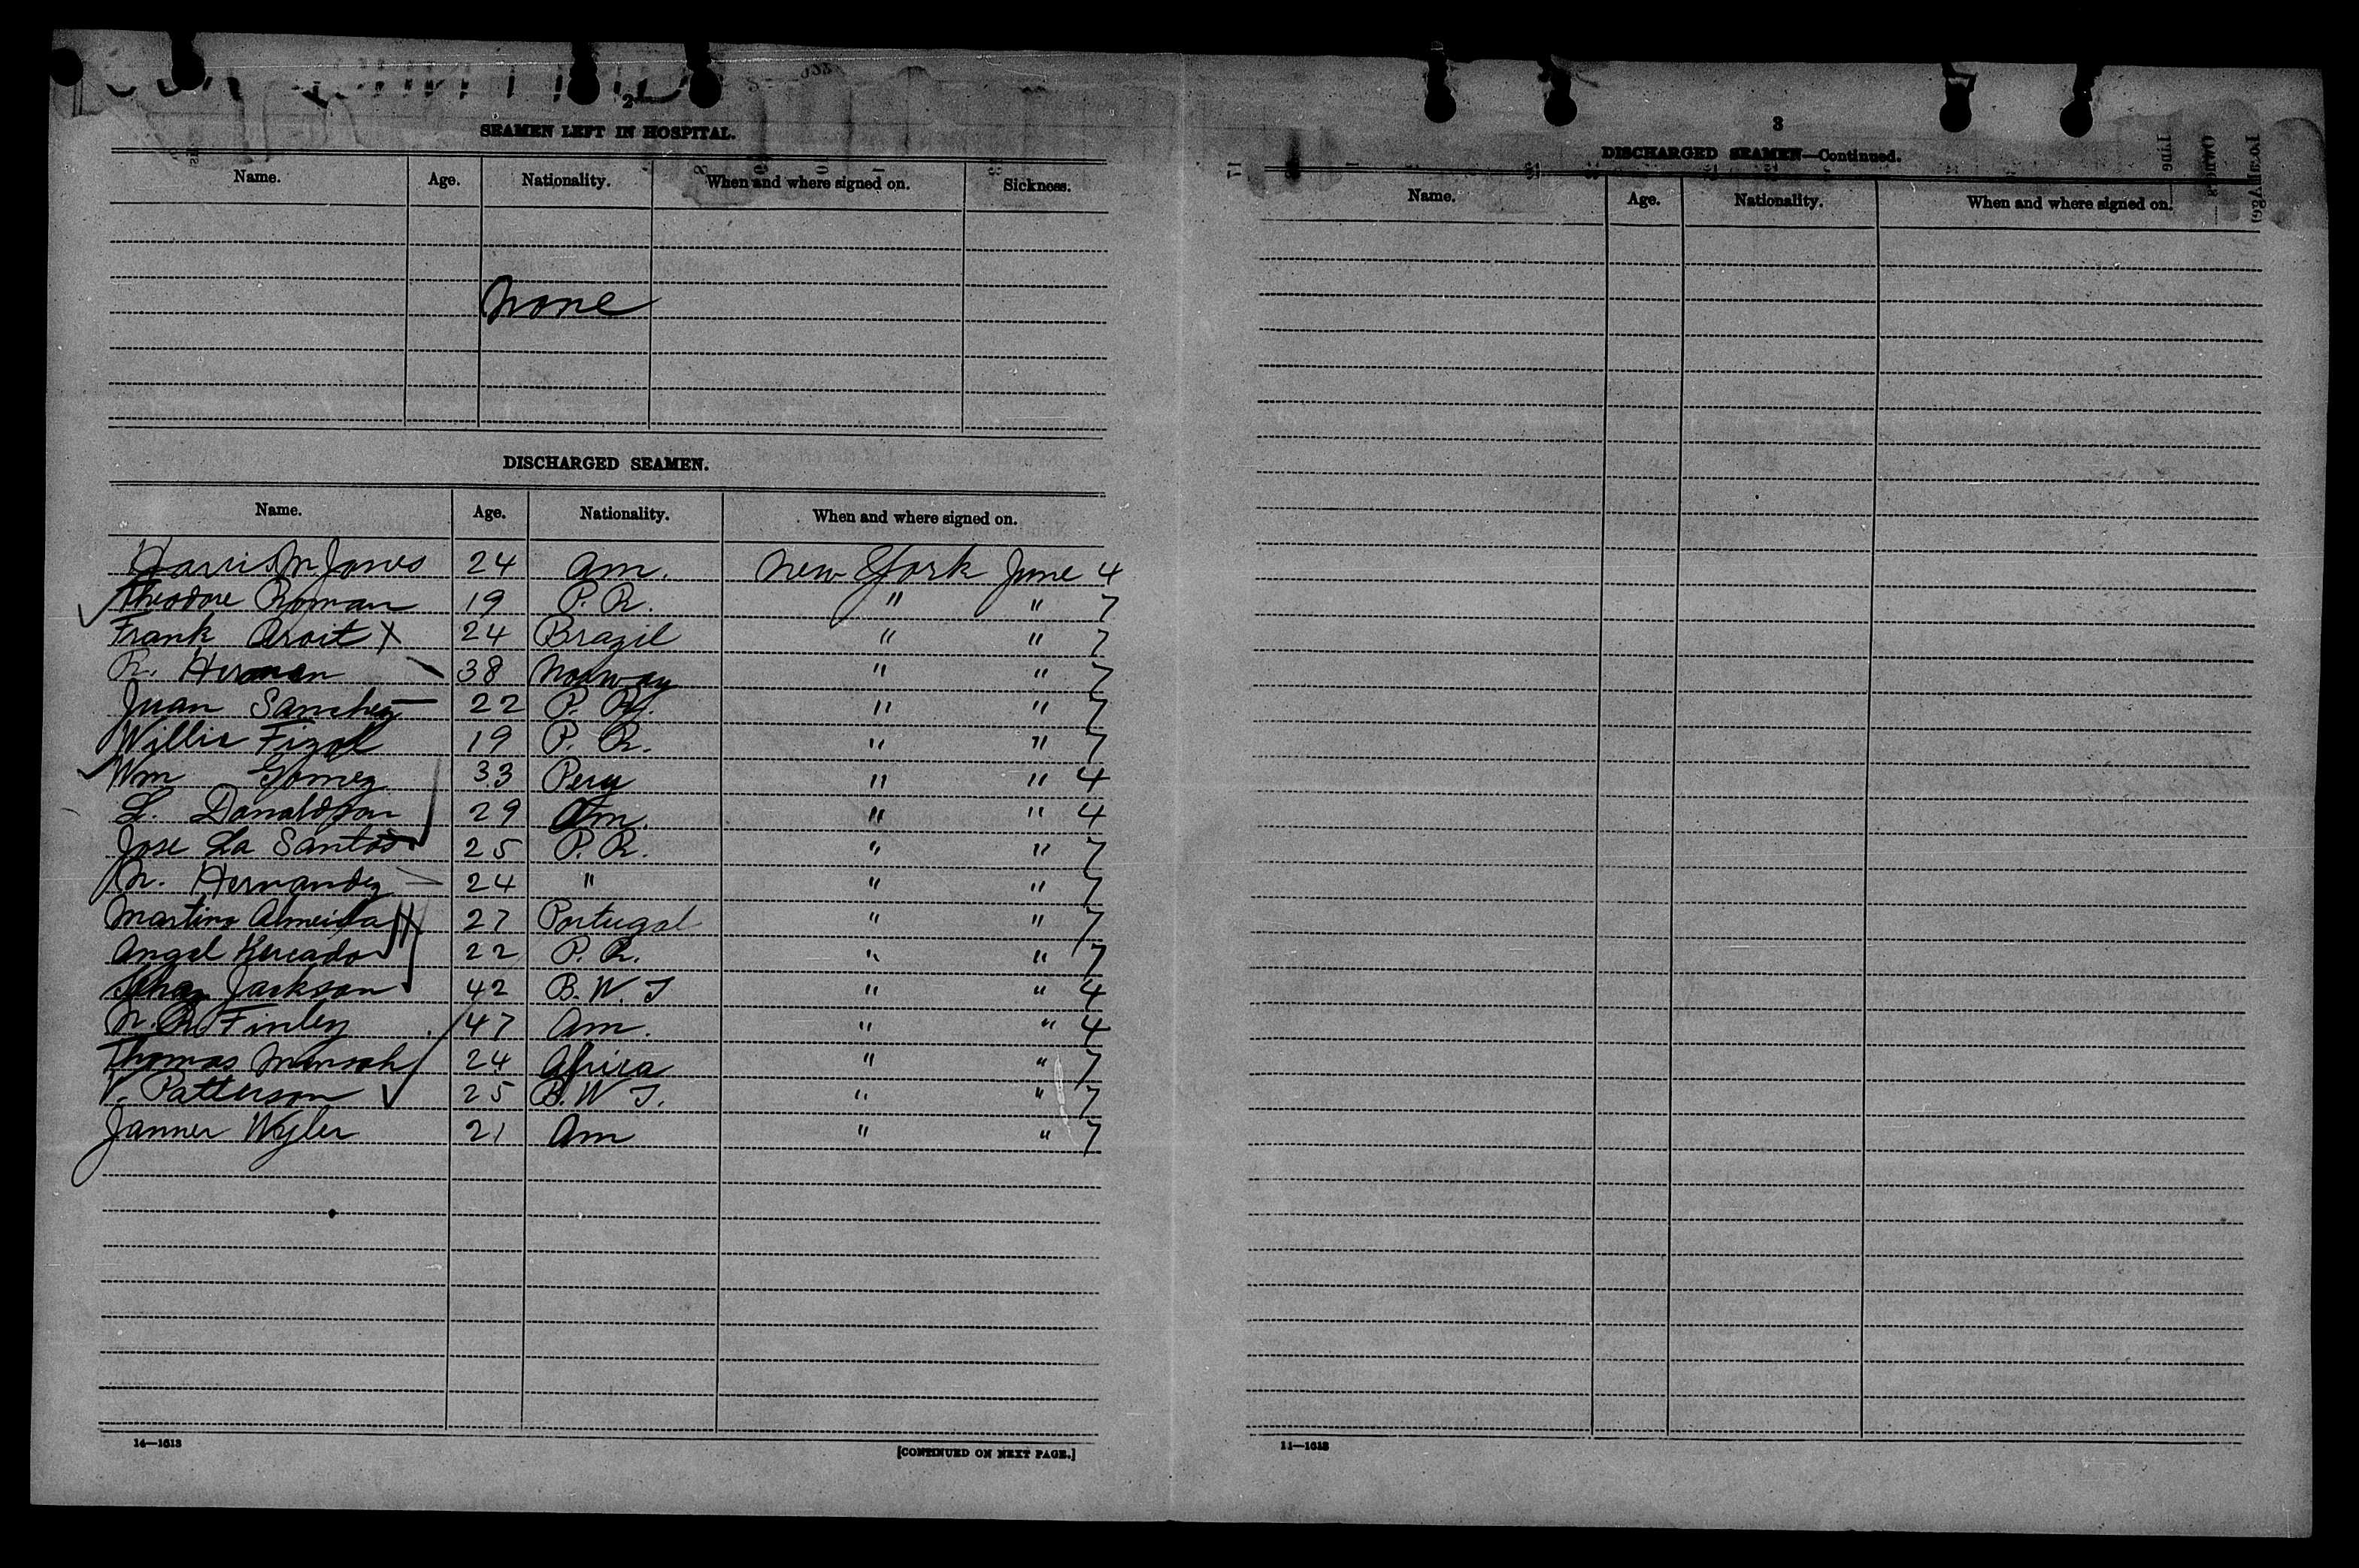 2
SEAMEN LEFT IN HOSPITAL.
Name. Age. Nationality. When and where signed on. Sickness.
None
DISCHARGED SEAMEN.
Name. Age. Nationality. When and where signed on.
Harris M Jones 24 Am. New York June 4
Theodore Roman 19 P. R. " " 7
Frank 24 Brazil " " 7
R. Herman 38 Norway " " 7
Juan Sanchez 22 P. R. " " 7
Willie 19 P. R. " " 7
Wm Gomez 33 Peru " " 4
L. Donaldson 29 Am. " " 4
Jose La Santos 25 P. R. " " 7
Hernandez 24 " " " 7
Martins Almeida 27 Portugal " " 7
Angel 22 P. R. " " 7
Jackson 42 B. W. I " " 4
Finley 47 Am. " " 4
Thomas Mensah 24 Africa " " 7
V. Patterson 25 B. W I. " " 7
Wyler 21 Am " " 7
14—1613
[CONTINUED ON NEXT PAGE.]
3
DISCHARGED SEAMEN—Continued.
Name. Age. Nationality. When and where signed on.
11—1613